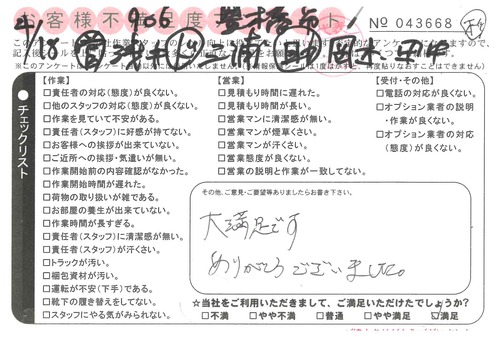 お客様不満足度アンケート
906
豊橋市
No 043668
4/18
このアンケートは
記入後
※このアンケート
チェックリスト
【作業】
□責任者の対応(態度)が良くない。
□他のスタッフの対応(態度)が良くない。
□作業を見ていて不安がある。
□責任者(スタッフ)に好感が持てない。
□お客様への挨拶が出来ていない。
□ご近所への挨拶・気遣いが無い。
□作業開始前の内容確認がなかった。
□作業開始時間が遅れた。
□荷物の取り扱いが雑である。
□お部屋の養生が出来ていない。
□作業時間が長すぎる。
□責任者(スタッフ)に清潔感が無い。
□責任者(スタッフ)が汗くさい。
□トラックが汚い。
□梱包資材が汚い。
□運転が不安(下手)である。
□靴下の履き替えをしてない。
□スタッフにやる気がみられない。
【営業】
□見積り時間に遅れた。
□見積もり時間が長い。
□営業マンに清潔感が無い。
□営業マンが煙草くさい。
□営業マンが汗くさい。
□営業態度が良くない。
□営業の説明と作業が一致してない。
【受付・その他】
□電話の対応が良くない。
□オプション業者の説明
・作業が良くない。
□オプション業者の対応
(態度)が良くない。
その他、ご意見・ご要望等ありましたらお書き下さい。
大満足です
ありがとうございました。
☆当社をご利用いただきまして、ご満足いただけたでしょうか?
□不満 □やや不満 □普通 □やや満足 ☑満足